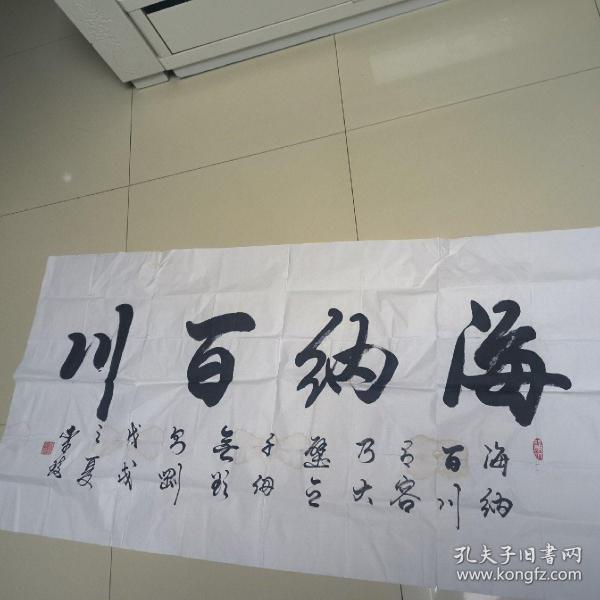 海納百川
海納
百川
有容
乃大
壁立
千仞
無欲
則剛
戊戌
之夏
孔夫子旧书网
www.kongfz.com